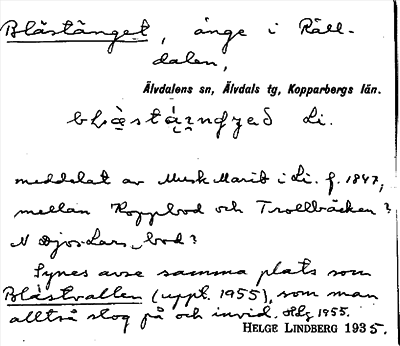 Blåstänget, änge i Råll-
dalen,
Älvdalens sn, Älvdals tg, Kopparbergs län.
Li.
meddelat av Musk Marit i Li. f. 1847,
mellan Koppbod och Trollbäcken?
N Djos Lars, bod?
Synes avse samma plats som
Blåstvallen (uppt. 1955), som man
alltså slog på och invid. Hlg 1955.
HELGE LINDBERG 1935.